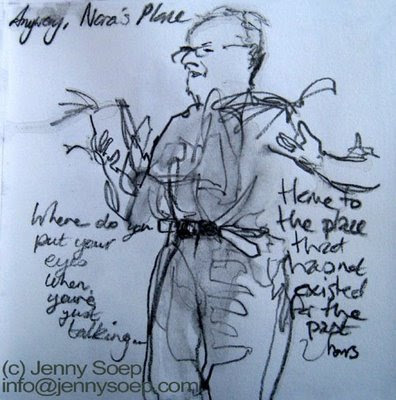 Anyway, Nora's Place
Where do you
put your
eyes
when
you're
just
talking...
Home to
the place
that
has not
existed
for the
past
2 hours
(c) Jenny Soep
info@jennysoep.com